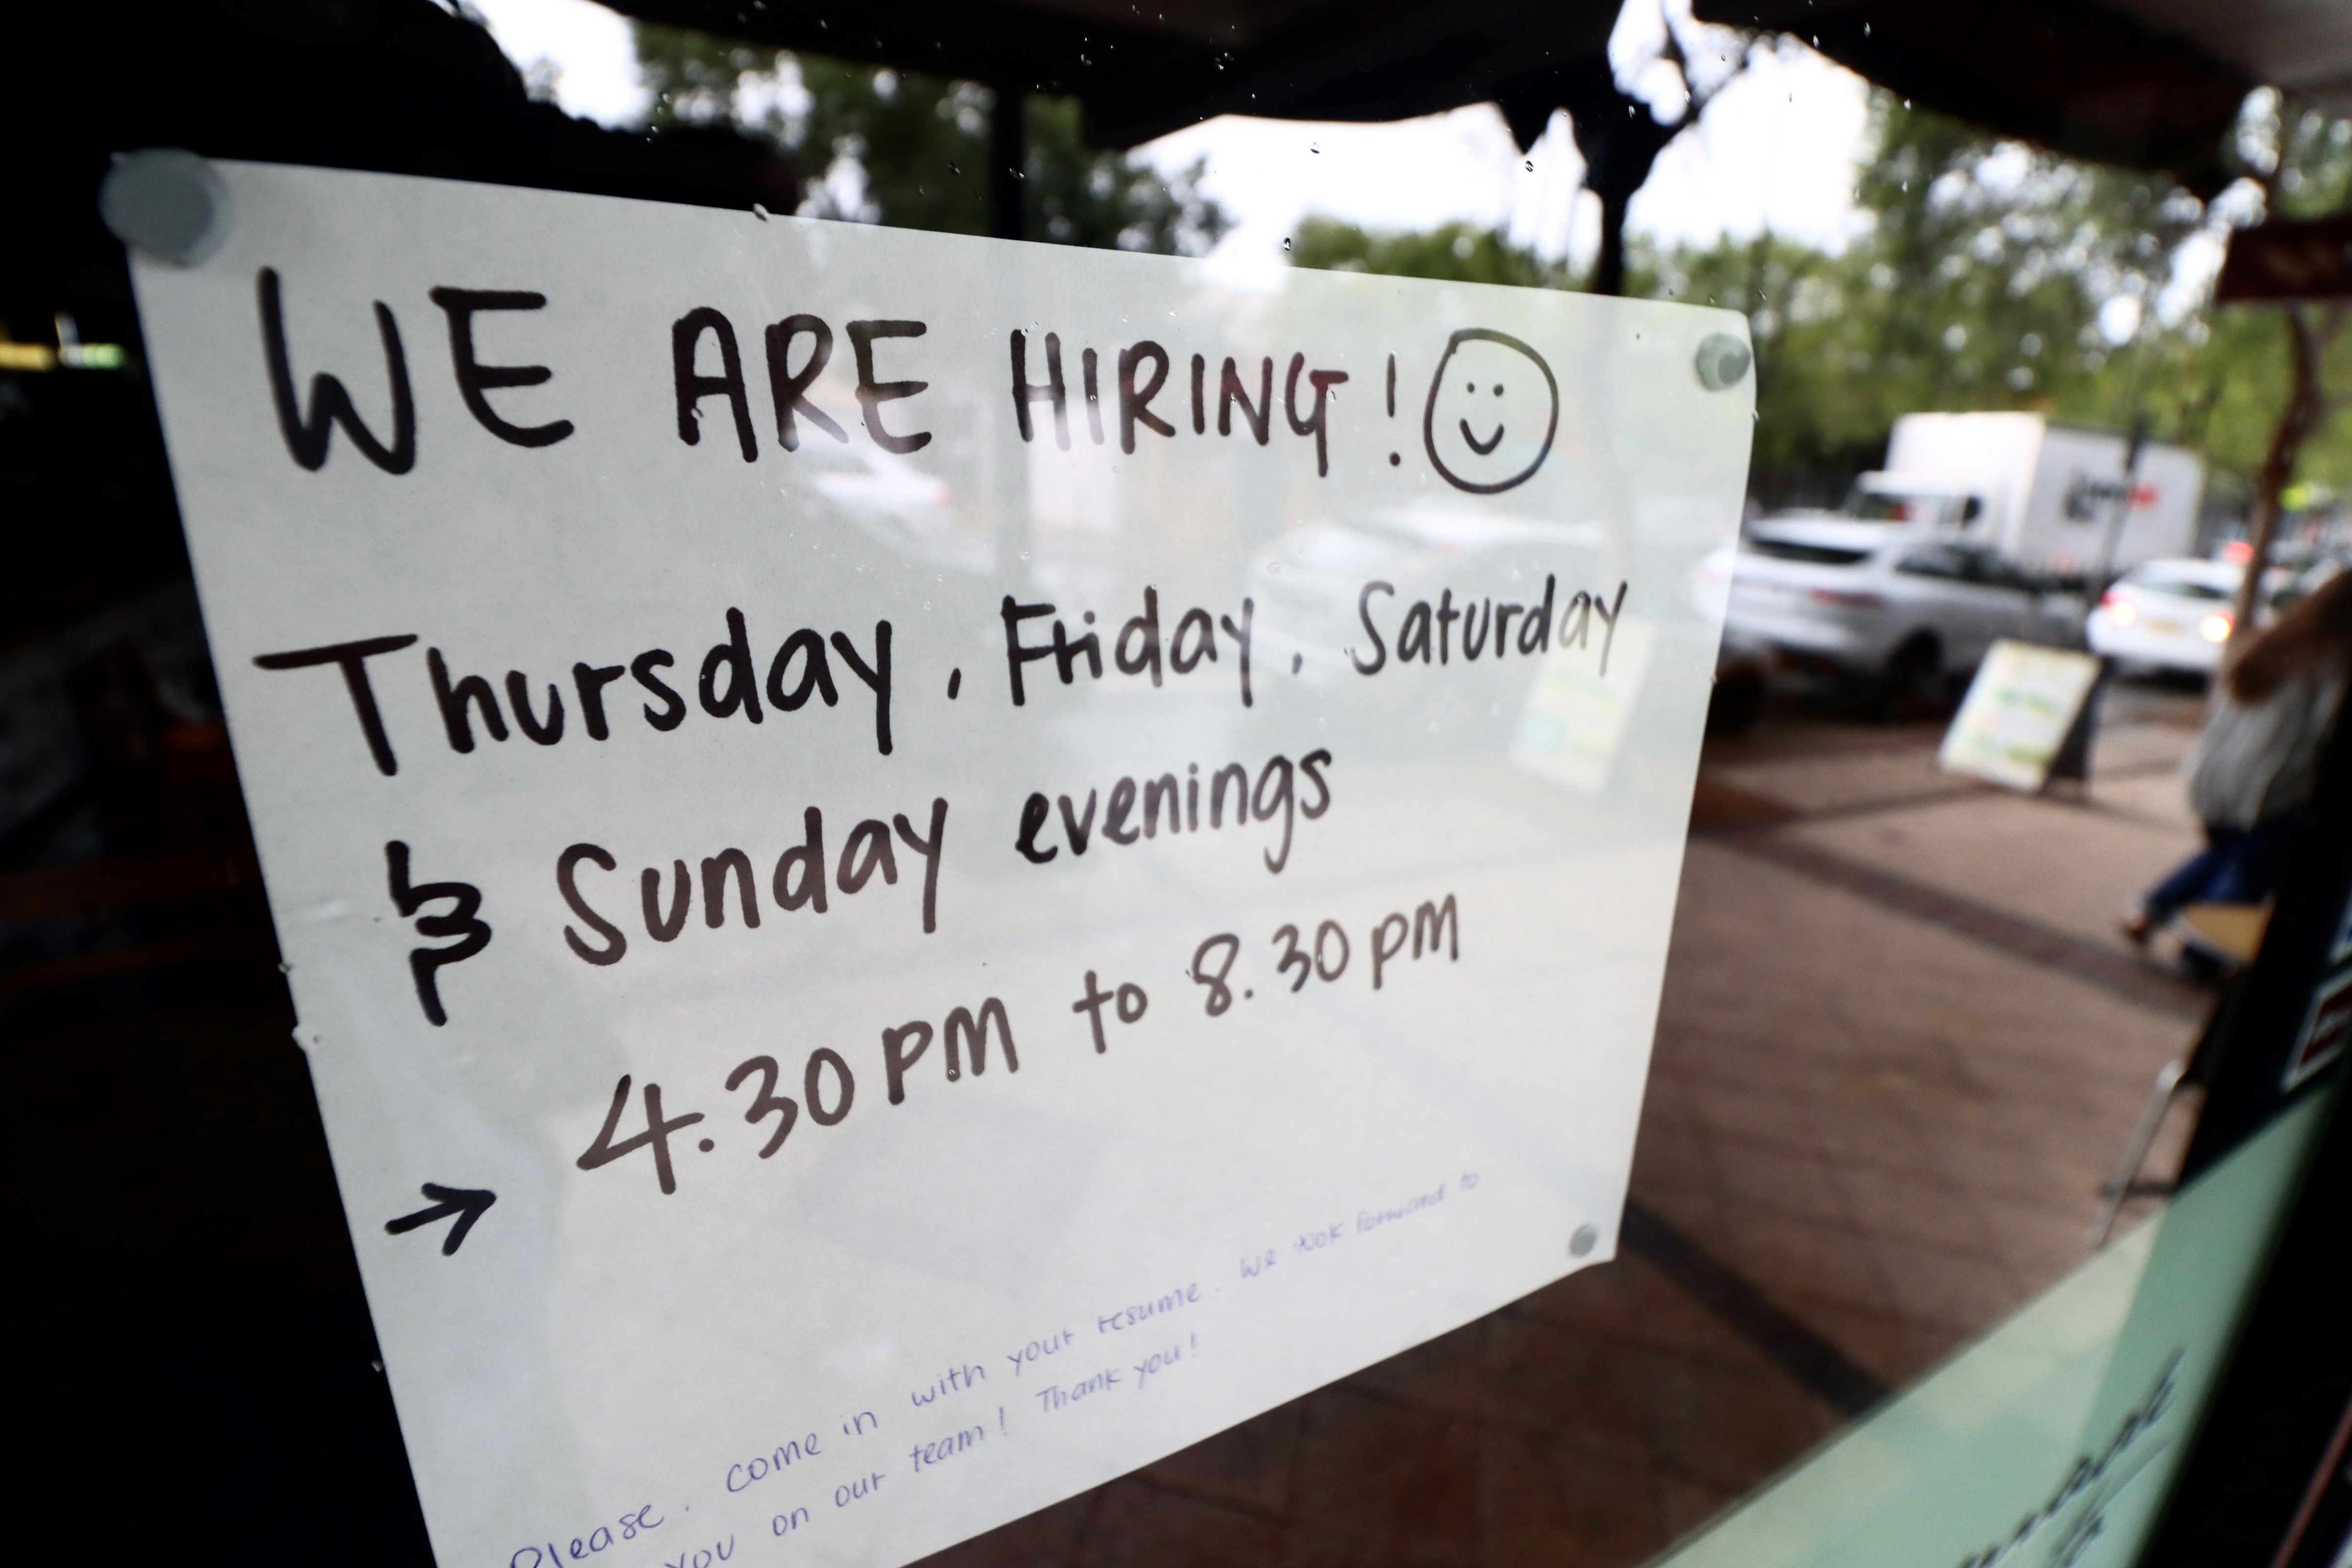 WE ARE HIRING!
Thursday, Friday, Saturday
& Sunday evenings
→ 4.30PM to 8.30PM
Please. come in with your resume. We look forward to
you on our team! Thank you!